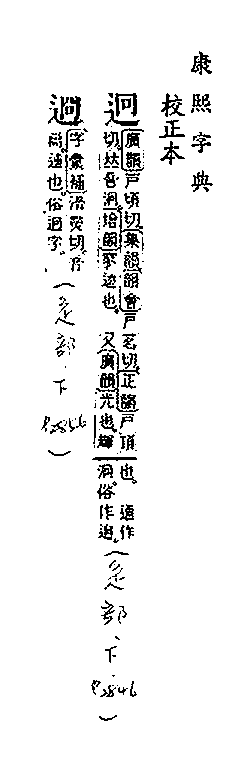 康熙字典
校正本
迥
廣韻戸頂切集韻韻會戸茗切正韻戸頂
切𠀤音泂增韻寥遠也 又廣韻光也輝
也 通作
泂俗作逈
(辵部、下、P2846)
逈
字彙補
尚遠也俗迥字
(辵部、下 P2856)